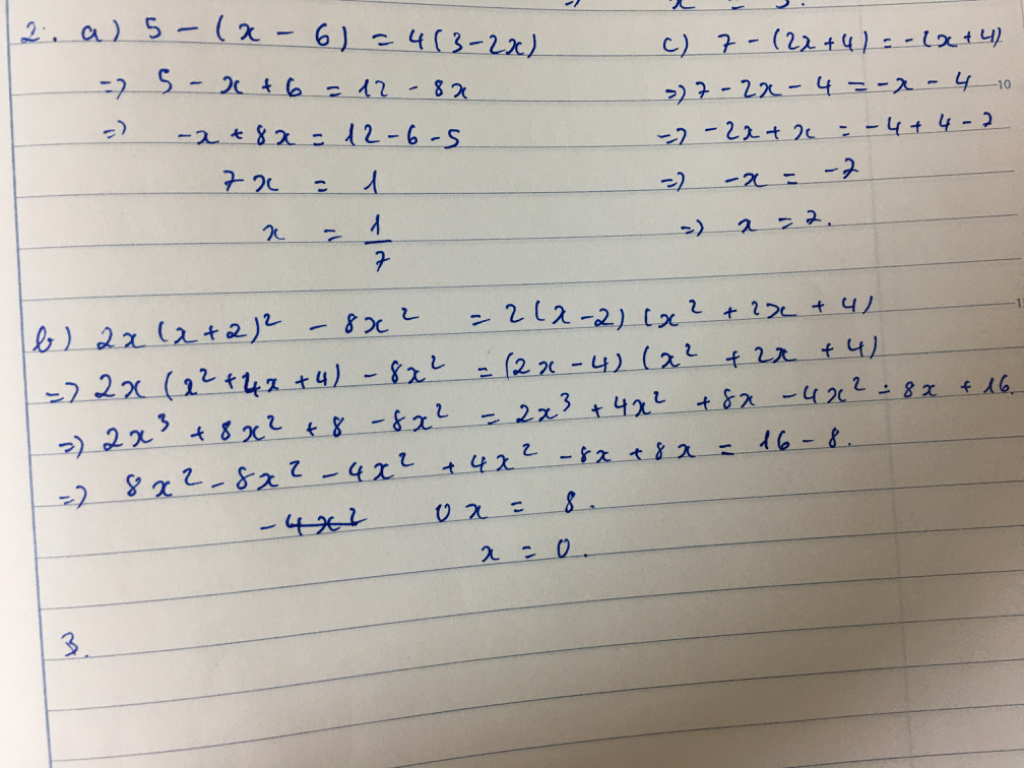 2. a) 5 - (x - 6) = 4(3 - 2x)
=> 5 - x + 6 = 12 - 8x
=> -x + 8x = 12 - 6 - 5
7x = 1
x = 1/7
c) 7 - (2x + 4) = -(x + 4)
=> 7 - 2x - 4 = -x - 4
=> -2x + x = -4 + 4 - 7
=> -x = -7
=> x = 7.
b) 2x (x + 2)² - 8x² = 2(x - 2) (x² + 2x + 4)
=> 2x (x² + 4x + 4) - 8x² = (2x - 4) (x² + 2x + 4)
=> 2x³ + 8x² + 8 - 8x² = 2x³ + 4x² + 8x - 4x² - 8x + 16.
=> 8x² - 8x² - 4x² + 4x² - 8x + 8x = 16 - 8.
-4x² 0x = 8.
x = 0.
3.
10